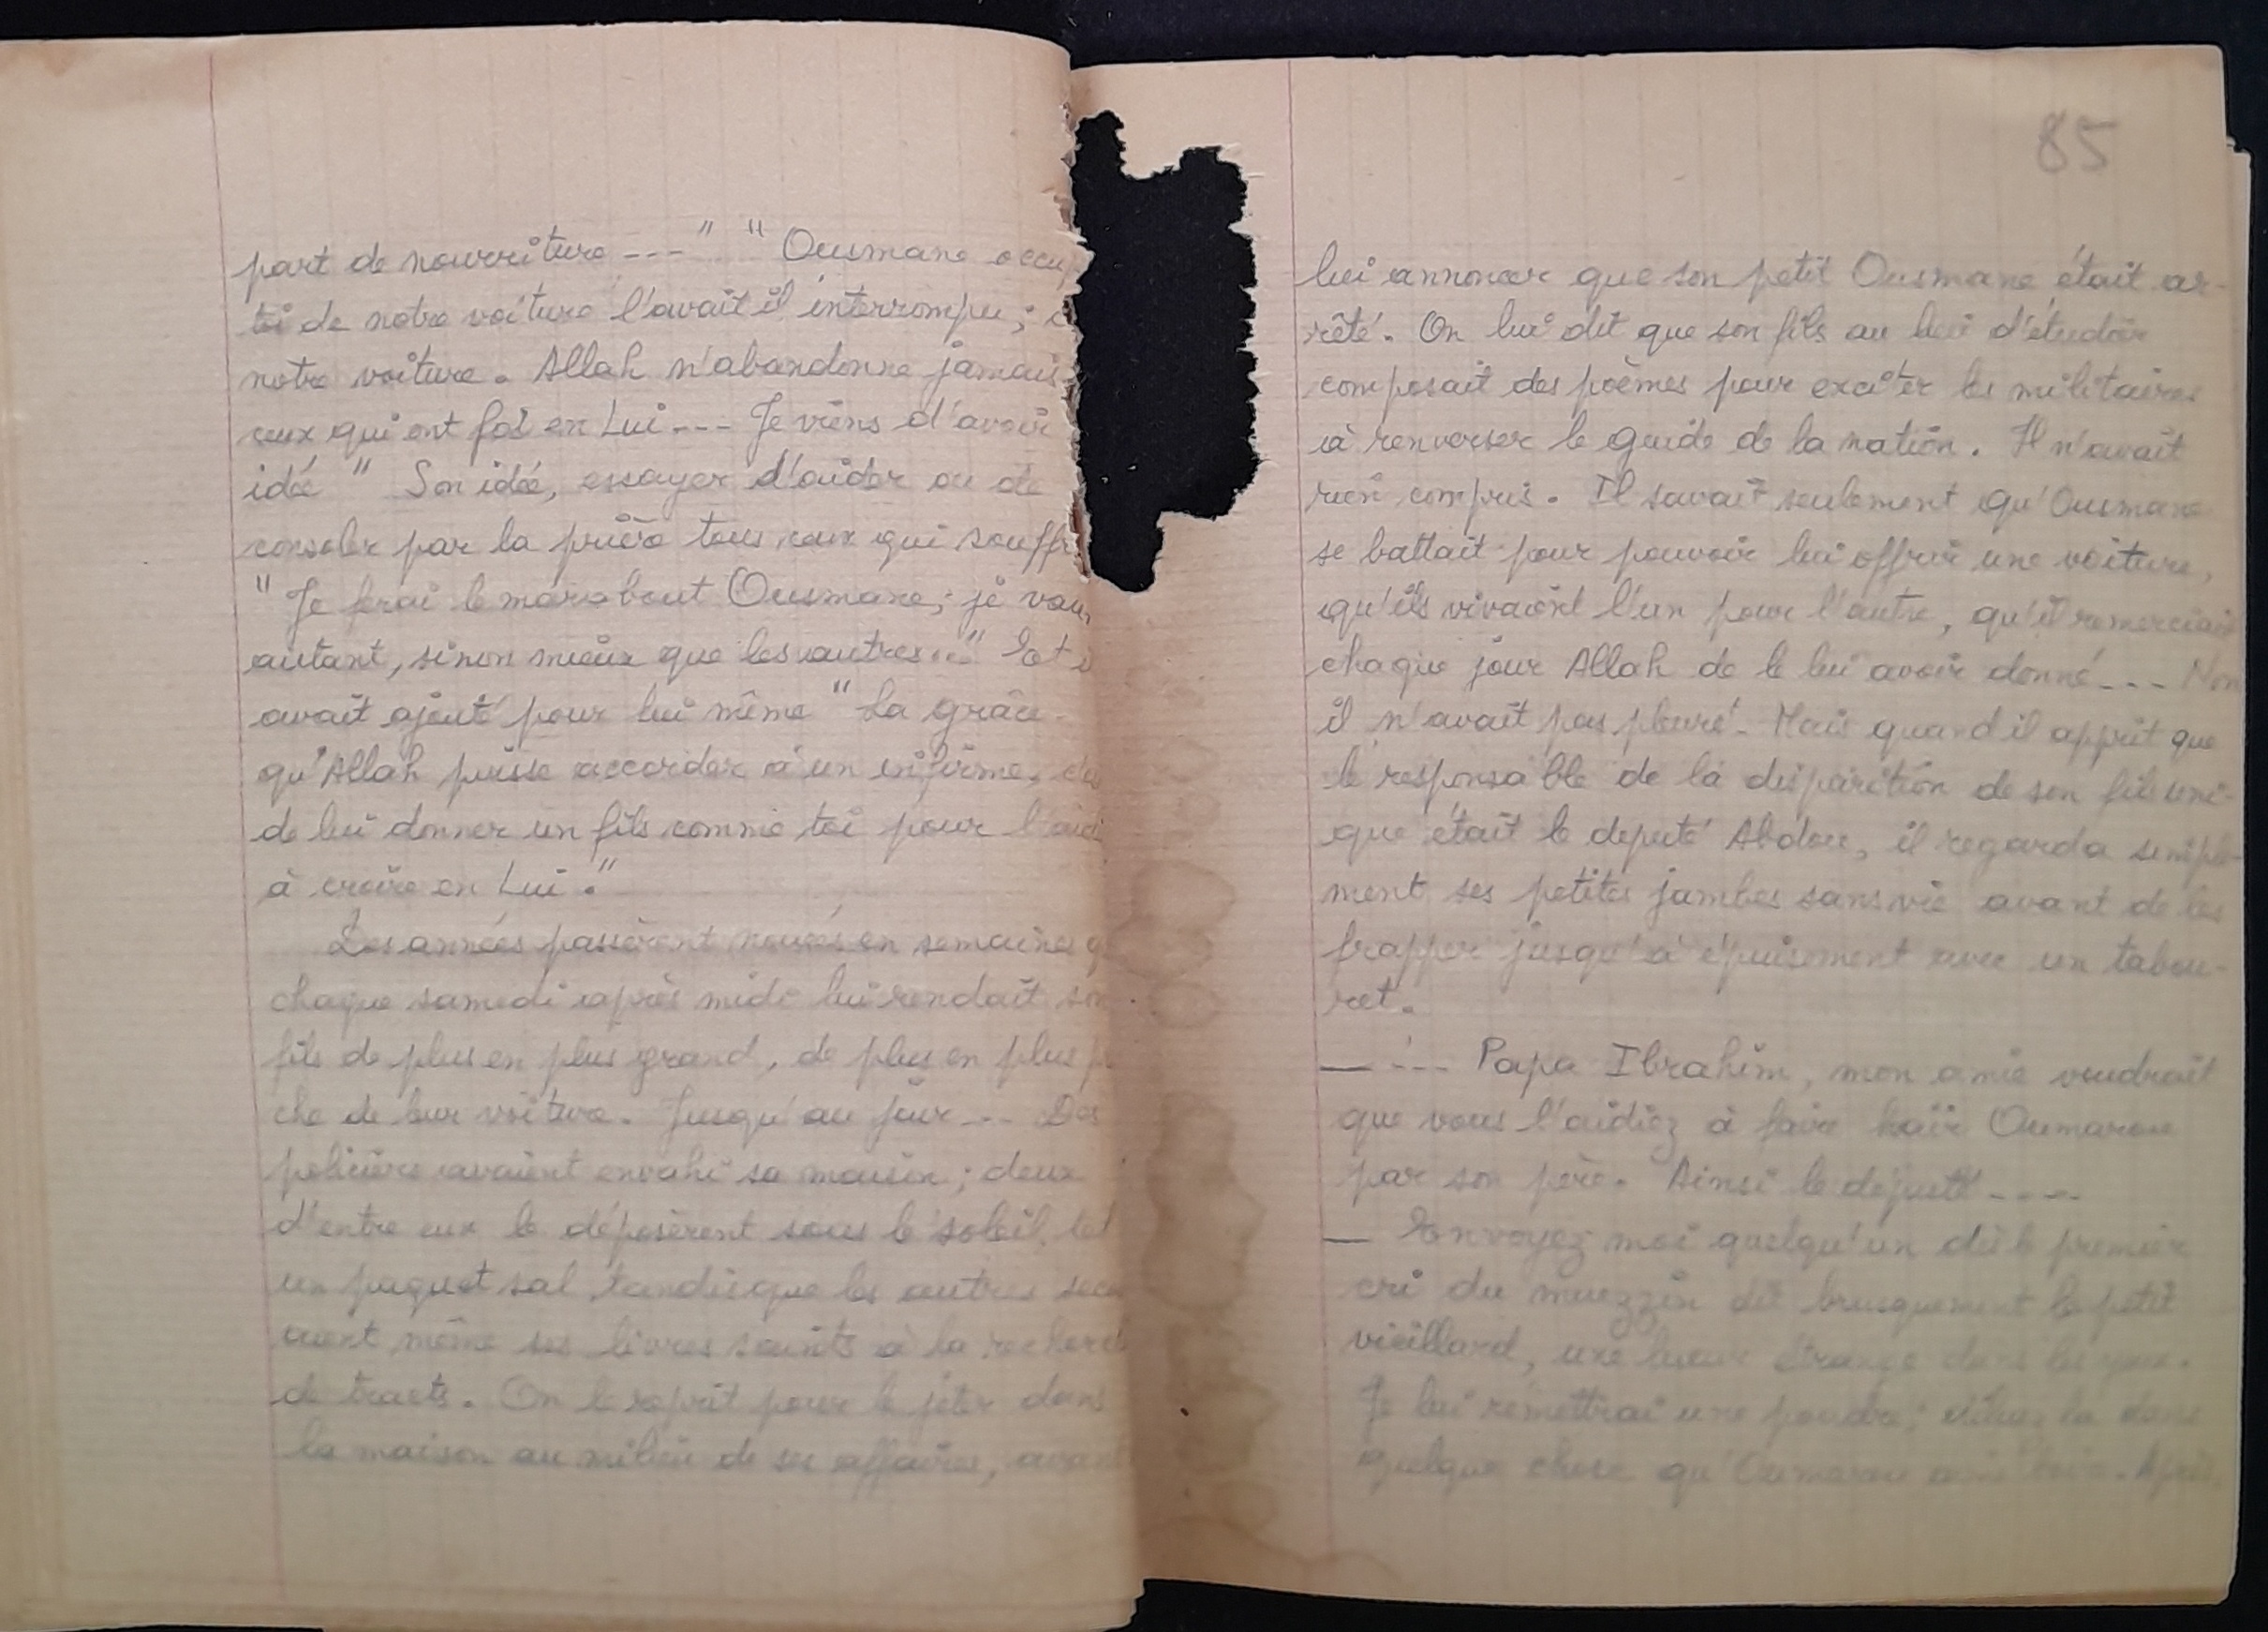 part de nourriture ---" "Ousmane occup
toi de notre voiture l'avait il interrompu ;
notre voiture. Allah n'abandonne jamais
ceux qui ont foi en Lui --- Je viens d'avoir
idée" Son idée, essayer d'aider ou de
consoler par la prière tous ceux qui souffr
"Je ferai le marabout Ousmane ; je vau
autant, sinon mieux que les autres..." Et i
avait ajouté pour lui même "La grâce
qu'Allah puisse accorder à un infirme,
de lui donner un fils comme toi pour l'aid
à croire en Lui."
Les années passèrent nouées en semaines q
chaque samedi après midi lui rendait son
fils de plus en plus grand, de plus en plus p
che de leur voiture. Jusqu'au jour --- Des
policiers avaient envahi sa maison ; deux
d'entre eux le déposèrent sous le soleil, tel
un paquet sal tandisque les autres seco
uent même ses livres saints à la recherch
de tracts. On le reprit pour le jeter dans
la maison au milieu de ses affaires, avan
85
lui annoncer que son petit Ousmane était ar-
rêté. On lui dit que son fils au lieu d'étudier
composait des poèmes pour exciter les militaires
à renverser le guide de la nation. Il n'avait
rien compris. Il savait seulement qu'Ousmane
se battait pour pouvoir lui offrir une voiture,
qu'ils vivaient l'un pour l'autre, qu'il remerciait
chaque jour Allah de le lui avoir donné --- Non
il n'avait pas pleuré. Mais quand il apprit que
le responsable de la disparition de son fils uni-
que était le deputé Abdou, il regarda simple-
ment ses petites jambes sans vie avant de les
frapper jusqu'à épuisement avec un tabou-
ret.
— --- Papa Ibrahim, mon amie voudrait
que vous l'aidiez à faire haïr Oumarou
par son père. Ainsi le deputé ----
— Envoyez moi quelqu'un dès le premier
cri du muezzin dit brusquement le petit
vieillard, une lueur étrange dans les yeux.
Je lui remettrai une poudre ; diluez la dans
quelque chose qu'Oumarou boire. Après